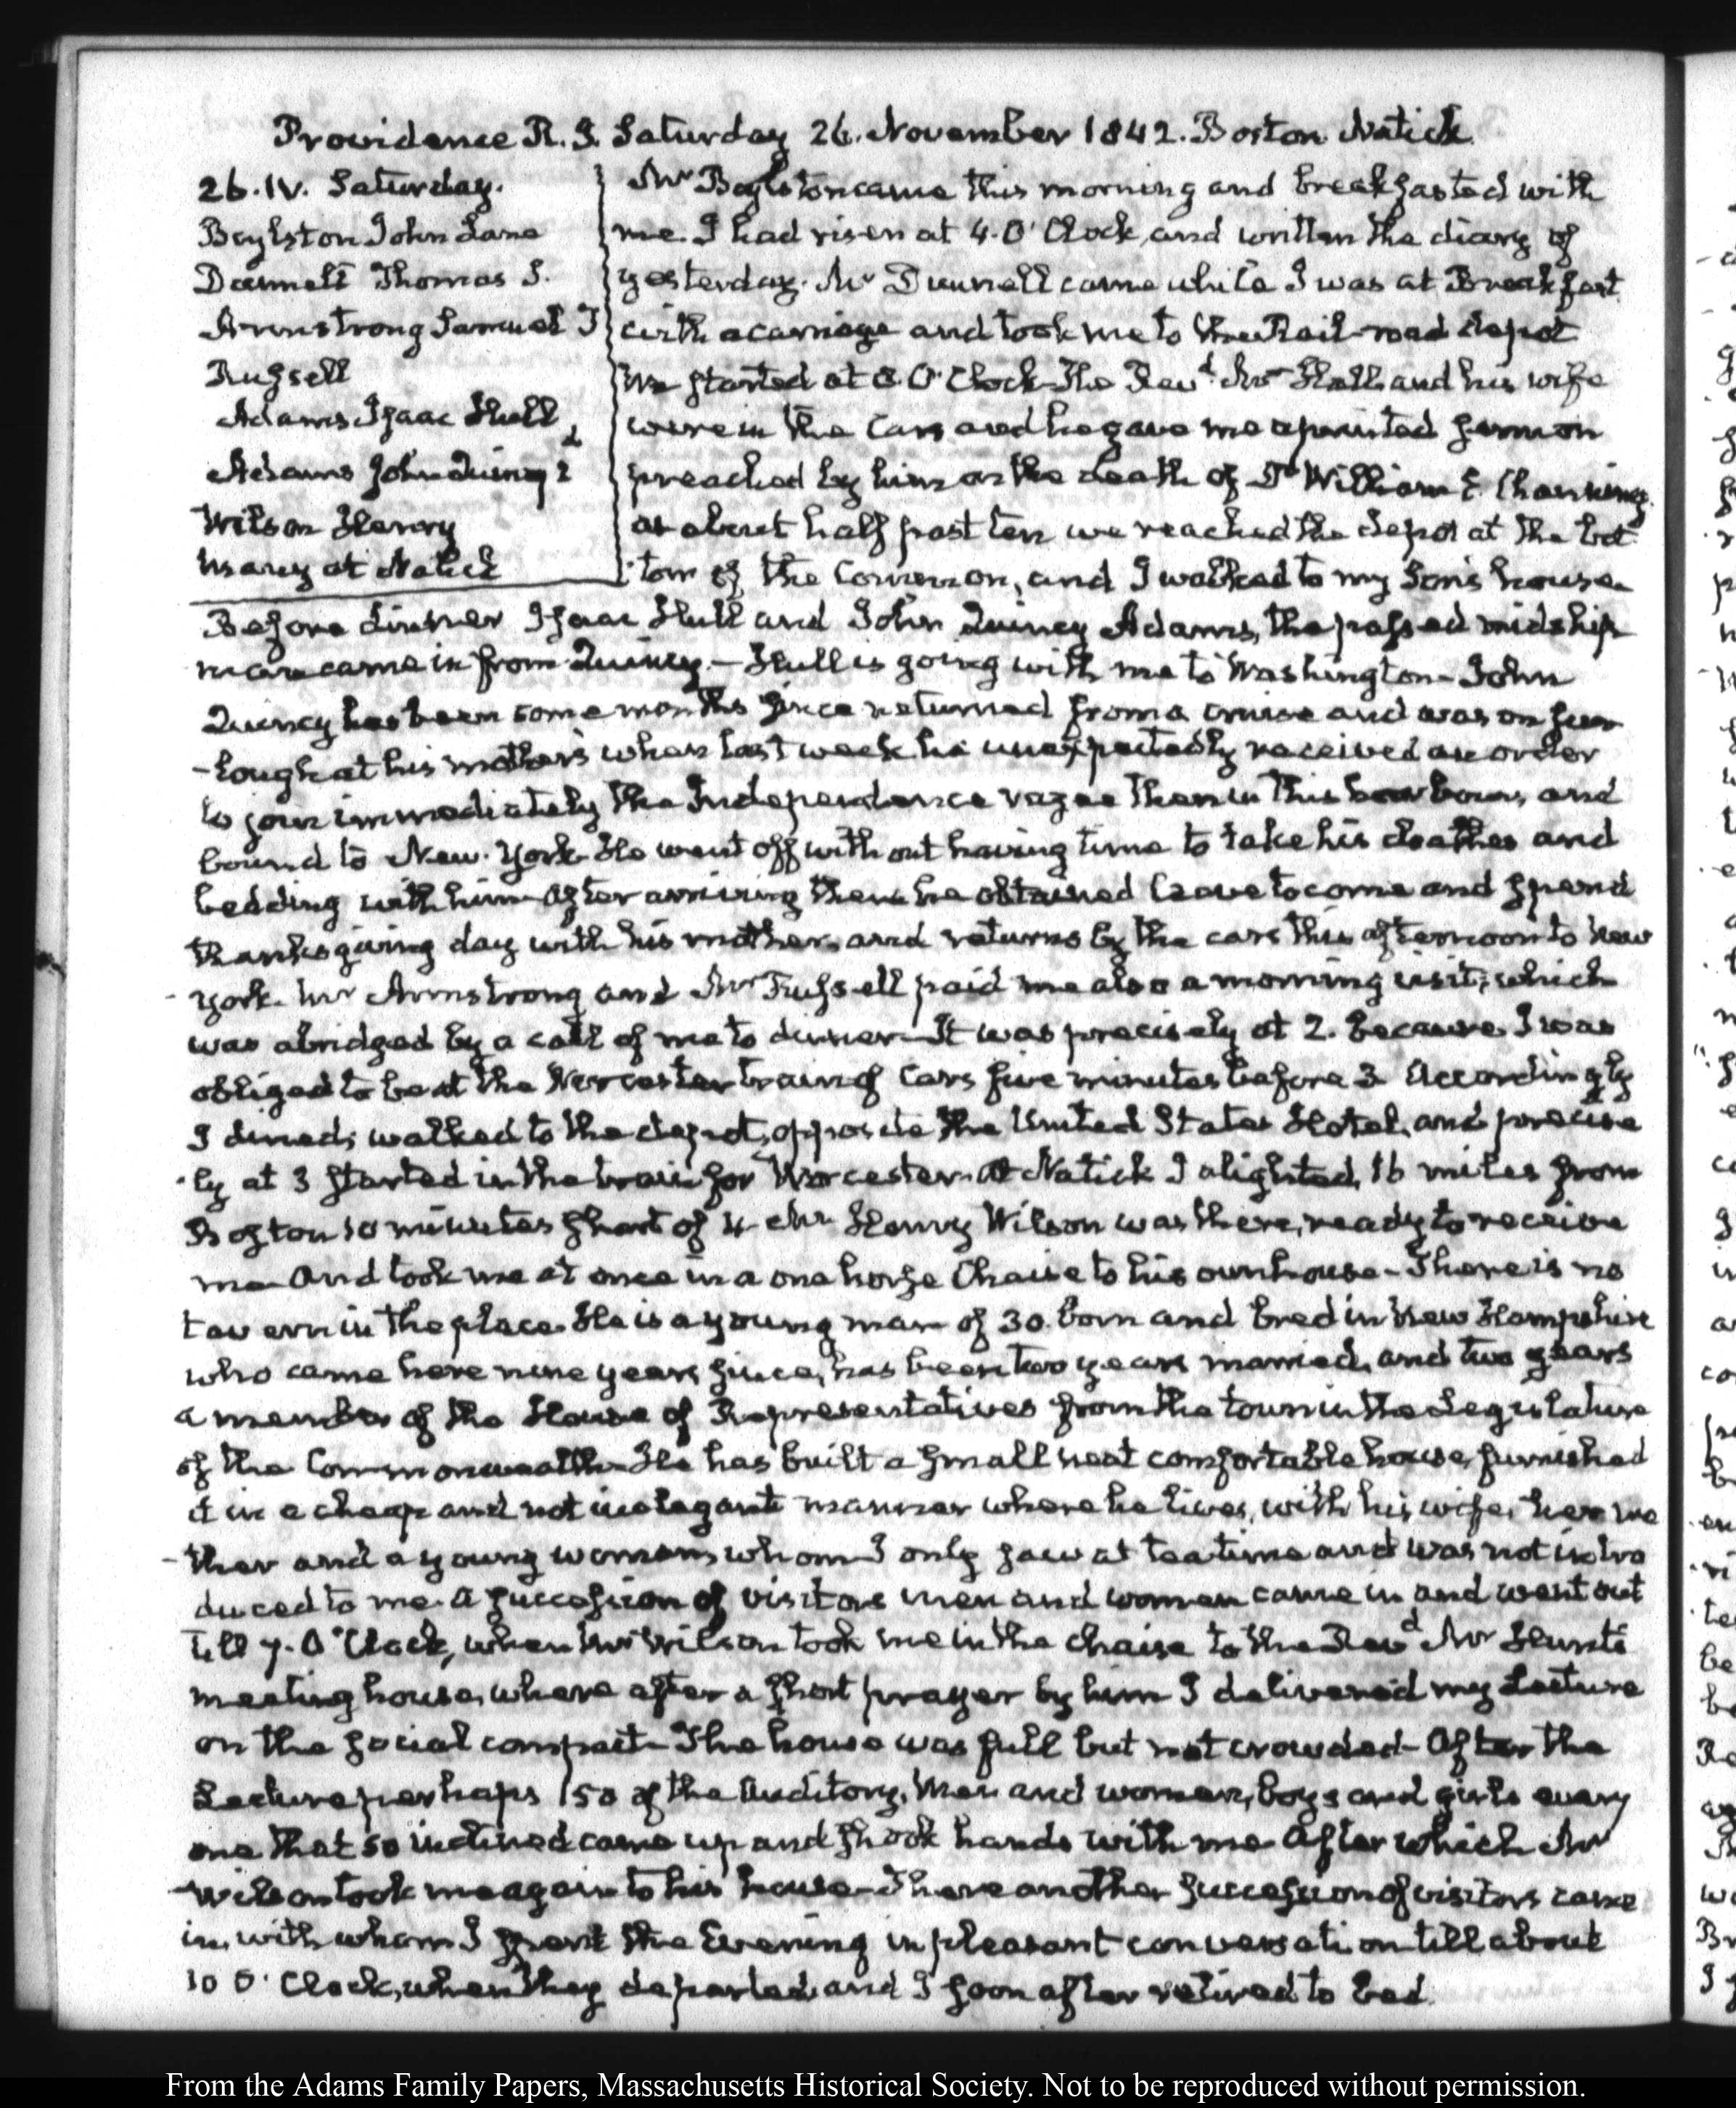 Providence R.I. Saturday 26. November 1842. Boston Natick
26. IV. Saturday.
Boylston John Lane
Dunnell Thomas L.
Armstrong Samuel T
Russell
Adams Isaac Hull
Adams John Quincy 2d
Wilson Henry
many at Natick
Mr Boylston came this morning and breakfasted with
me. I had risen at 4. O' Clock, and written the diary of
yesterday. Mr Dunnell came while I was at Breakfast
with a carriage and took me to the Rail-road depot
We started at 8 O' Clock. The Revd. Mr Hall and his wife
were in the Cars and he gave me a printed sermon
preached by him on the death of Dr William E. Channing.
at about half past ten we reached the depot at the bot
-tom of the Common, and I walked to my Son's house.
Before dinner Isaac Hull and John Quincy Adams, the passed midship
man came in from Quincy. — Hull is going with me to Washington — John
Quincy has been some months since returned from a cruise and was on fur
-lough at his mother's when last week he unexpectedly received an order
to join immediately the Independence razee then in this harbour, and
bound to New-York. He went off without having time to take his cloathes and
bedding with him. After arriving there he obtained leave to come and spend
thanksgiving day with his mother, and returns by the cars this afternoon to New
-York. Mr Armstrong and Mr Russell paid me also a morning visit, which
was abridged by a call of me to dinner. It was precisely at 2. because I was
obliged to be at the Worcester train of Cars five minutes before 3. Accordingly
I dined, walked to the depot, opposite the United States Hotel, and precise
-ly at 3 started in the train for Worcester. At Natick I alighted, 16 miles from
Boston 10 minutes short of 4. Mr Henry Wilson was there, ready to receive
me And took me at once in a one horse Chaise to his own house — There is no
tavern in the place. He is a young man of 30. born and bred in New Hampshire
who came here nine years since, has been two years married, and two years
a member of the House of Representatives from the town in the Legislature
of the Commonwealth. He has built a small neat comfortable house, furnished
it in a cheap and not inelegant manner where he lives, with his wife, her mo
-ther and a young woman, whom I only saw at tea time and was not intro
duced to me. A succession of visitors men and women came in and went out
till 7. O'Clock, when Mr Wilson took me in the chaise to the Revd Mr Hunt's
meeting house, where after a short prayer by him I delivered my Lecture
on the social compact — The house was full but not crowded — After the
Lecture perhaps 150 of the Auditory, Men and women, boys and girls every
one that so inclined came up and shook hands with me. After which Mr
Wilson took me again to his house — There another succession of visitors came
in, with whom I spent the Evening in pleasant conversation till about
10 O' Clock, when they departed and I soon after retired to bed.
From the Adams Family Papers, Massachusetts Historical Society. Not to be reproduced without permission.